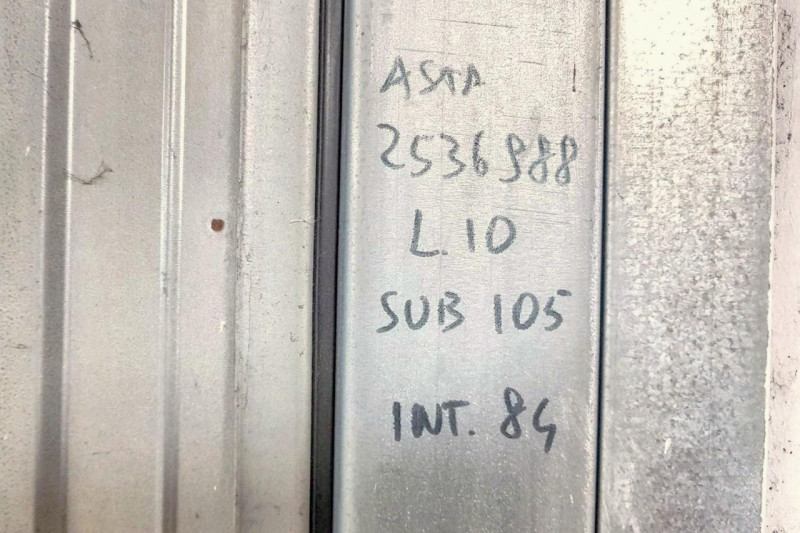 ASTA
2536988
L.10
SUB 105
INT. 84